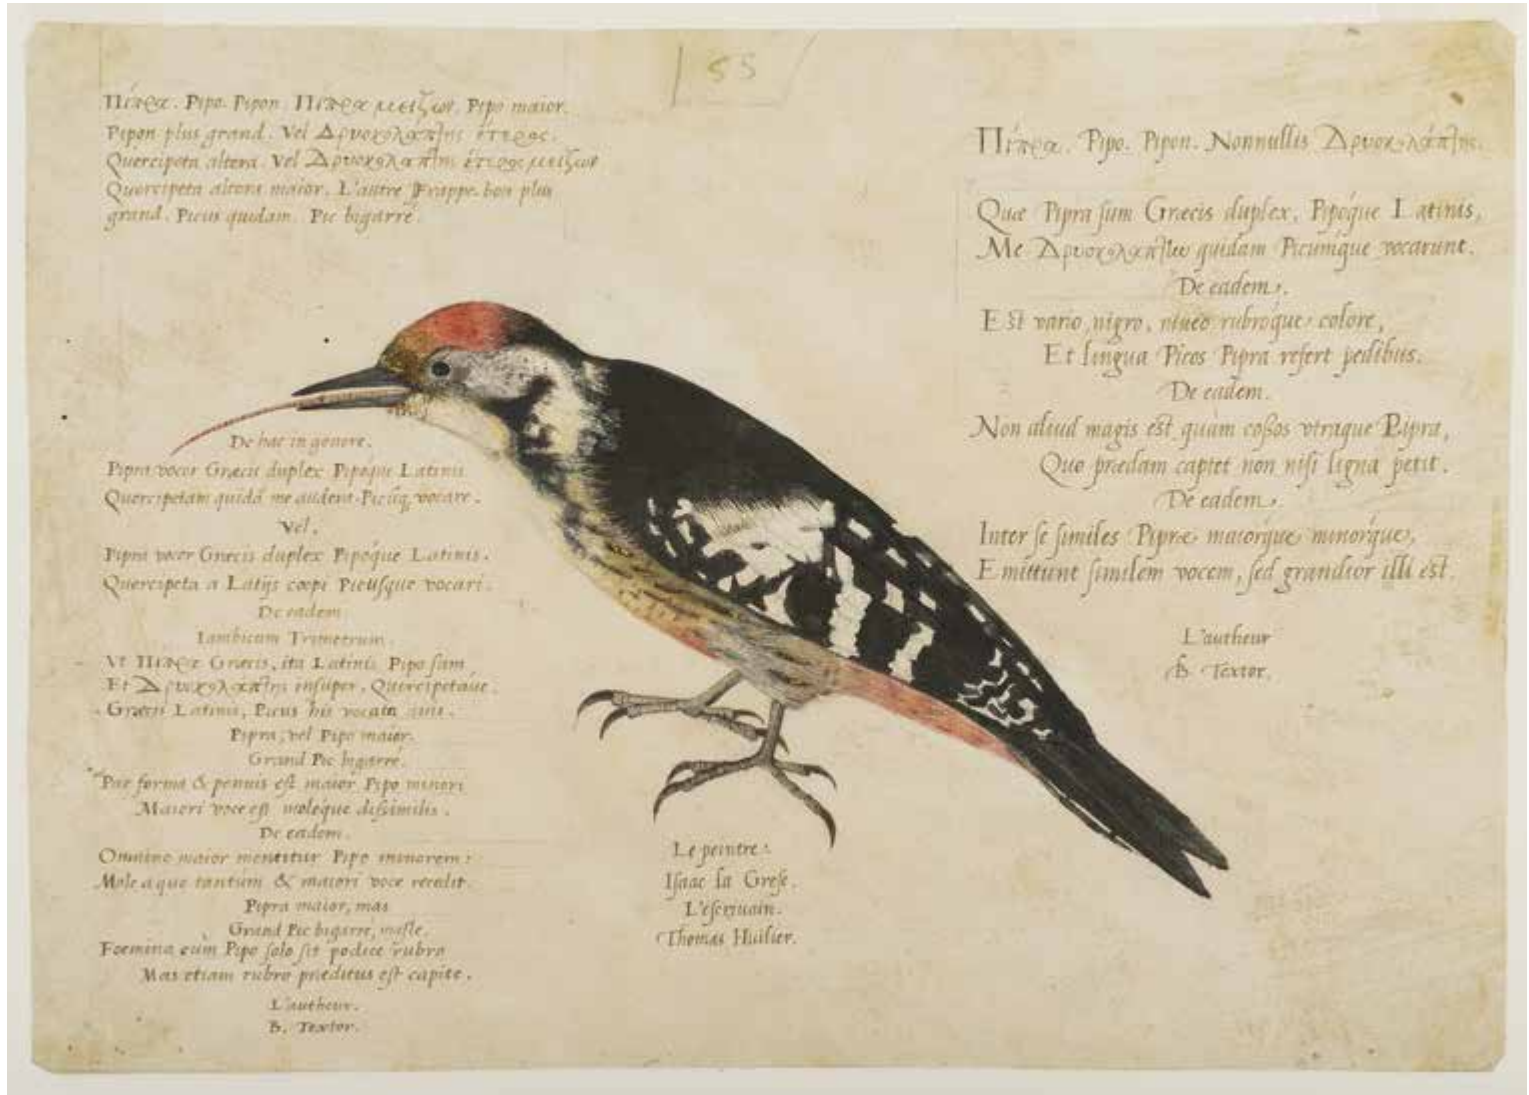 55
Πίπρα. Pipo. Pipon. Πίπρα μείζων. Pipo maior.
Pipon plus grand. Vel Δρυοκολάπτης ἕτερος.
Quercipeta altera. Vel Δρυοκολάπτης ἕτερος μείζων
Quercipeta altera maior. L'autre Frappe-bou plus
grand. Picus quidam. Pic bigarré.
De hac in genere.
Pipra vocor Græcis duplex Pipóque Latinis
Quercipetam quidã me audent Picũq; vocare.
Vel.
Pipra vocor Græcis duplex Pipóque Latinis.
Quercipeta a Latijs cœpi Picusque vocari.
De eadem.
Iambicum Trimetrum.
Vt Πίπρα Græcis, ita Latinis Pipo sum
Et Δρυοκολάπτης insuper, Quercipetáue.
Græcis Latinis, Picus his
Pipra, vel Pipo maior.
Grand Pic bigarré.
Par forma & pennis est maior Pipo minori
Maiori voce est moleque dissimilis.
De eadem.
Omnino maior mentitur Pipo minorem:
Mole aque tantùm & maiori voce recedit.
Pipra maior, mas
Grand Pic bigarré, masle.
Foemina cùm Pipo solo sit podice rubro
Mas etiam rubro præditus est capite.
L'autheur.
B. Textor.
Le peintre:
Isaac la Grese.
L'escriuain.
Thomas Huilier.
Πίπρα. Pipo. Pipon. Nonnullis Δρυοκολάπτης.
Quæ Pipra sum Græcis duplex, Pipóque Latinis,
Me Δρυοκολάπτην quidam Picumque vocarunt.
De eadem.
Est vario, nigro, niueo rubroque colore,
Et lingua Picos Pipra refert pedibus.
De eadem.
Non aliud magis est quàm coßos vtraque Pipra,
Quo prædam captet non nisi ligna petit.
De eadem.
Inter se similes Pipræ maiorque minorque,
Emittunt similem vocem, sed grandior illi est.
L'autheur
B. Textor.